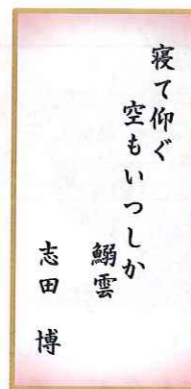 寝て仰ぐ
空もいつしか
鰯雲
志田　博